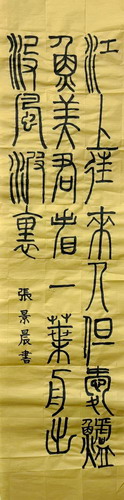 江上往來人但愛鱸
魚美君看一葉舟出
沒風波裏
張景晨書